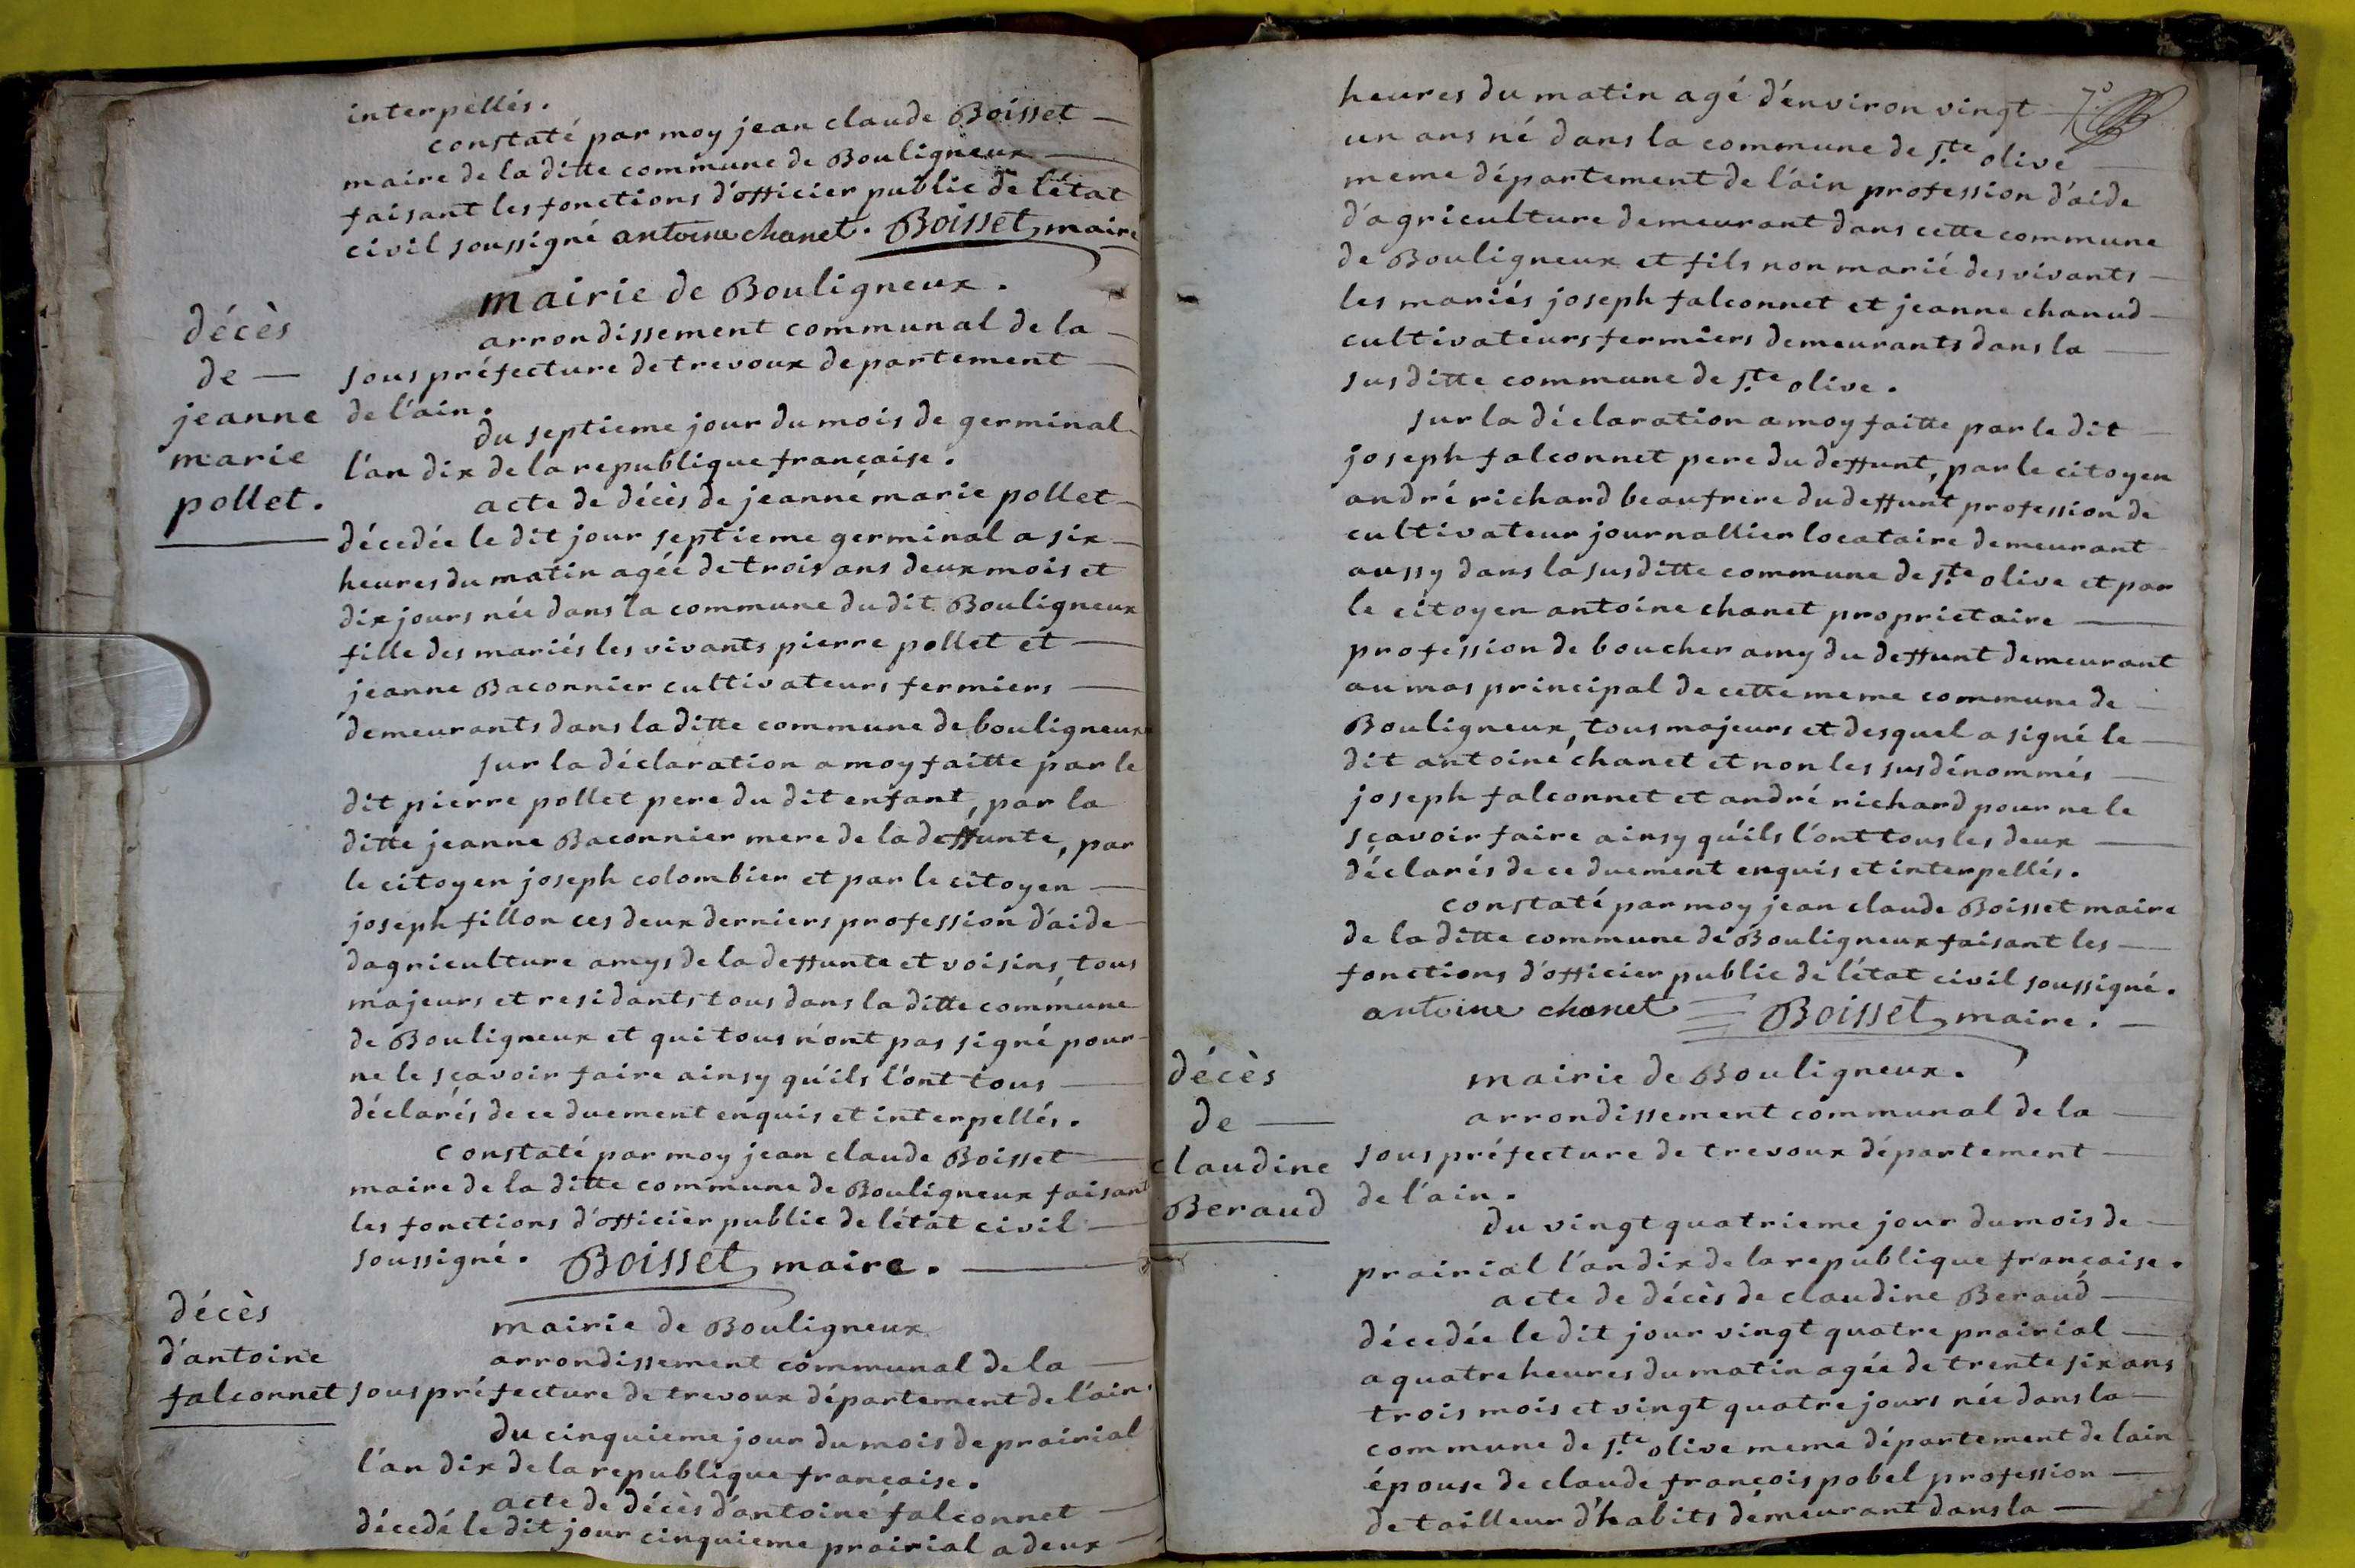 interpellés.
constaté par moy jean claude Boisset
maire de la ditte commune de Bouligneux
faisant les fonctions d'officier public de l'état
civil soussigné antoine chanet. Boisset, maire
mairie de Bouligneux.
arrondissement communal de la
sous préfecture de trevoux departement
de l'ain.
décès
de
jeanne
marie
pollet.
du septieme jour du mois de germinal
l'an dix de la republique française.
acte de décès de jeanne marie pollet
décedée le dit jour septieme germinal a six
heures du matin agée de trois ans deux mois et
dix jours née dans la commune du dit Bouligneux
fille des mariés les vivants pierre pollet et
jeanne Baconnier cultivateurs fermiers
demeurants dans la ditte commune de bouligneux
sur la déclaration a moy faitte par le
dit pierre pollet pere du dit enfant, par la
ditte jeanne Baconnier mere de la deffunte, par
le citoyen joseph colombier et par le citoyen
joseph fillon ces deux derniers profession d'aide
dagriculture amys de la deffunte et voisins, tous
majeurs et residants tous dans la ditte commune
de Bouligneux et qui tous n'ont pas signé pour
ne le sçavoir faire ainsy qu'ils l'ont tous
déclarés de ce duement enquis et interpellés.
constaté par moy jean claude Boisset
maire de la ditte commune de Bouligneux faisant
les fonctions d'officier public de l'état civil
soussigné. Boisset, maire.
décès
d'antoine
falconnet
mairie de Bouligneux
arrondissement communal de la
sous préfecture de trevoux département de l'ain.
du cinquieme jour du mois de prairial
l'an dix de la republique française.
acte de décès d'antoine falconnet
décedé le dit jour cinquieme prairial a deux
7.e
heures du matin agé d'environ vingt
un ans né dans la commune de s.te olive
meme département de l'ain profession d'aide
d'agriculture demeurant dans cette commune
de Bouligneux et fils non marié des vivants
les mariés joseph falconnet et jeanne chanud
cultivateurs fermiers demeurants dans la
sus ditte commune de s.te olive.
sur la déclaration a moy faitte par le dit
joseph falconnet pere du deffunt, par le citoyen
andré richard beaufrere du deffunt profession de
cultivateur journallier locataire demeurant
aussy dans la susditte commune de s.te olive et par
le citoyen antoine chanet proprietaire
profession de boucher amy du deffunt demeurant
au mas principal de cette meme commune de
Bouligneux, tous majeurs et desquel a signé le
dit antoine chanet et non les sus dénommés
joseph falconnet et andré richard pour ne le
sçavoir faire ainsy qu'ils l'ont tous les deux
déclarés de ce duement enquis et interpellés.
constaté par moy jean claude Boisset maire
de la ditte commune de Bouligneux faisant les
fonctions d'officier public de l'état civil soussigné.
antoine chanet Boisset, maire.
décès
de
claudine
Beraud
mairie de Bouligneux.
arrondissement communal de la
sous préfecture de trevoux département
de l'ain.
du vingt quatrieme jour du mois de
prairial l'an dix de la republique française.
acte de décès de claudine Beraud
décedée le dit jour vingt quatre prairial
a quatre heures du matin agée de trente six ans
trois mois et vingt quatre jours née dans la
commune de s.te olive meme département de lain
épouse de claude françois pobel profession
de tailleur d'habits demeurant dans la